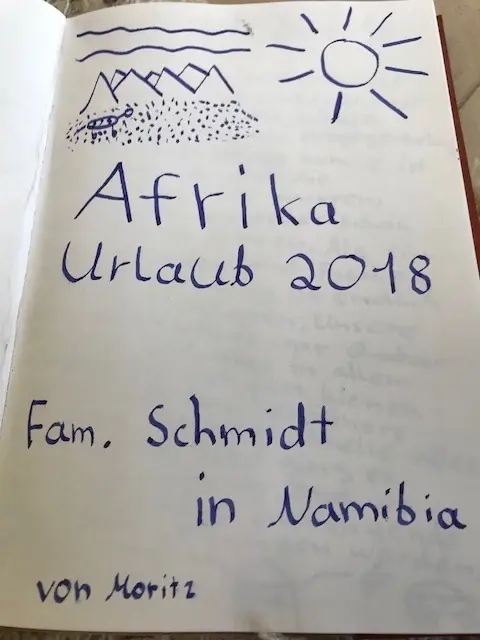 Afrika
Urlaub 2018
Fam. Schmidt
in Namibia
von Moritz